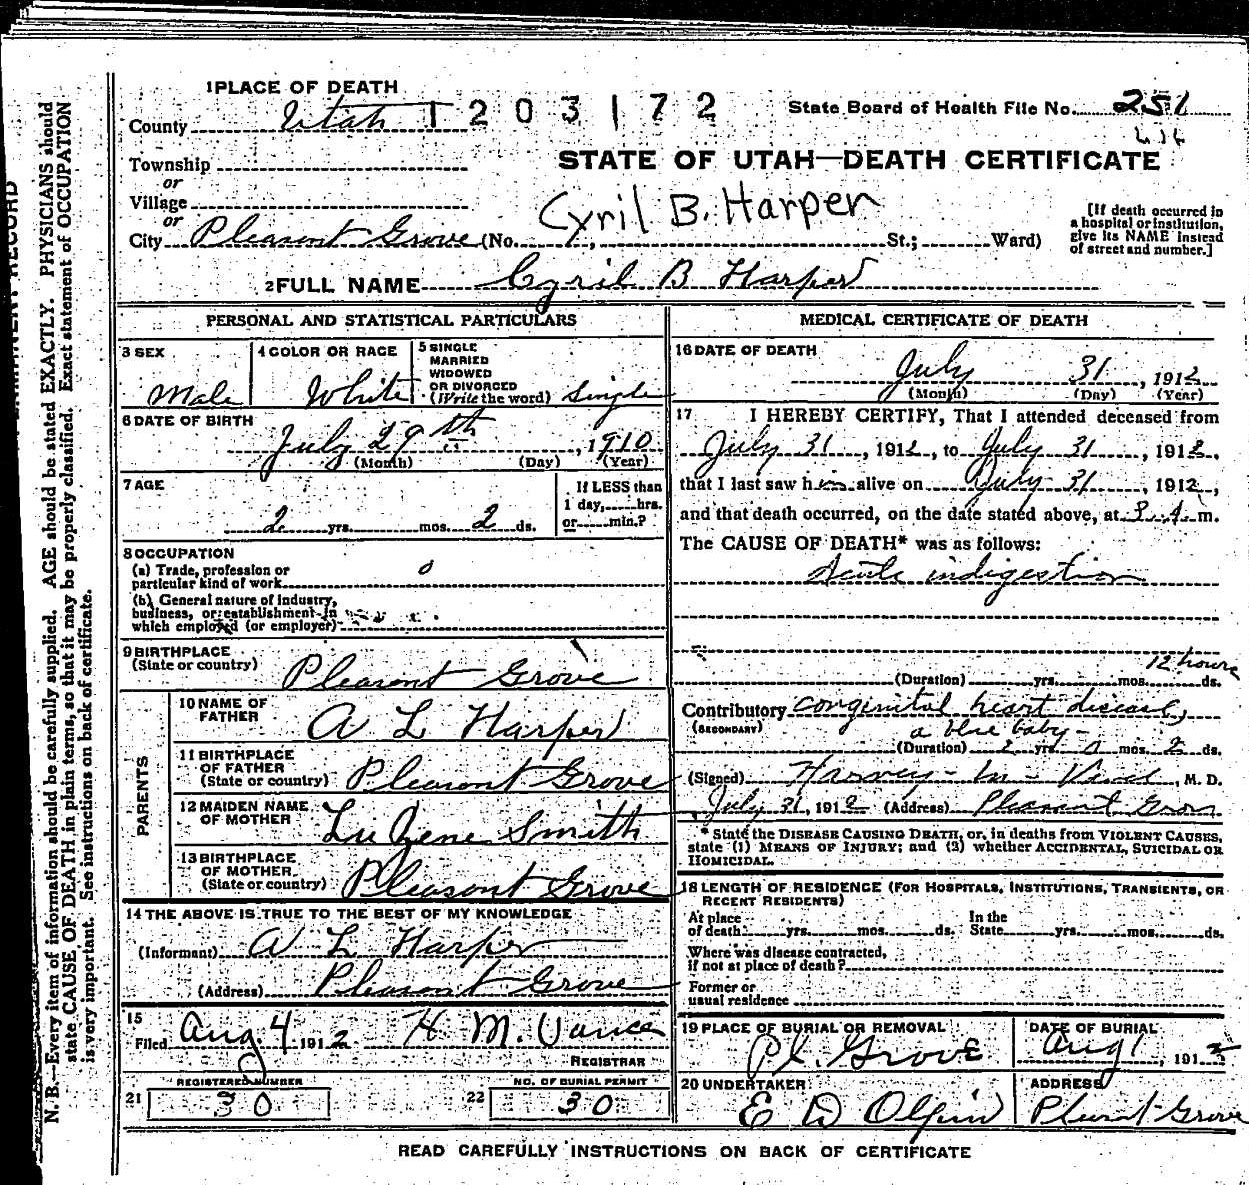 1 PLACE OF DEATH
County Utah
1203172
State Board of Health File No. 251
Township
or
Village
or
City Pleasant Grove (No. , St.; Ward)
STATE OF UTAH—DEATH CERTIFICATE
Cyril B. Harper
[If death occurred in
a hospital or institution,
give its NAME instead
of street and number.]
2 FULL NAME Cyril B Harper
PERSONAL AND STATISTICAL PARTICULARS
3 SEX
Male
4 COLOR OR RACE
White
5 SINGLE
MARRIED
WIDOWED
OR DIVORCED
(Write the word) Single
6 DATE OF BIRTH
July 29th, 1910
(Month) (Day) (Year)
7 AGE
2 yrs. mos. 2 ds.
If LESS than
1 day, hrs.
or min.?
8 OCCUPATION
(a) Trade, profession or
particular kind of work 0
(b) General nature of industry,
business, or establishment in
which employed (or employer)
9 BIRTHPLACE
(State or country) Pleasant Grove
PARENTS
10 NAME OF
FATHER A L Harper
11 BIRTHPLACE
OF FATHER
(State or country) Pleasant Grove
12 MAIDEN NAME
OF MOTHER Smith
13 BIRTHPLACE
OF MOTHER
(State or country) Pleasant Grove
14 THE ABOVE IS TRUE TO THE BEST OF MY KNOWLEDGE
(Informant) A L Harper
(Address) Pleasant Grove
15
Filed Aug 4 1912 H. M. Vance
REGISTRAR
21 REGISTERED NUMBER
30
22 NO. OF BURIAL PERMIT
30
MEDICAL CERTIFICATE OF DEATH
16 DATE OF DEATH
July 31, 1912
(Month) (Day) (Year)
17 I HEREBY CERTIFY, That I attended deceased from
July 31, 1912, to July 31, 1912,
that I last saw him alive on July 31, 1912,
and that death occurred, on the date stated above, at 3. m.
The CAUSE OF DEATH* was as follows:
Acute indigestion
12 hours
(Duration) yrs. mos. ds.
Contributory congenital heart disease,
(SECONDARY) a blue baby-
(Duration) 2 yrs. 0 mos. 2 ds.
(Signed) Harvey M. , M. D.
July 31, 1912 (Address) Pleasant Grove
* State the DISEASE CAUSING DEATH, or, in deaths from VIOLENT CAUSES,
state (1) MEANS OF INJURY; and (2) whether ACCIDENTAL, SUICIDAL OR
HOMICIDAL.
18 LENGTH OF RESIDENCE (FOR HOSPITALS, INSTITUTIONS, TRANSIENTS, OR
RECENT RESIDENTS)
At place In the
of death yrs. mos. ds. State yrs. mos. ds.
Where was disease contracted,
if not at place of death?
Former or
usual residence
19 PLACE OF BURIAL OR REMOVAL
Pl. Grove
DATE OF BURIAL
Aug 1, 1912
20 UNDERTAKER
E D Olpin
ADDRESS
Pleasant Grove
READ CAREFULLY INSTRUCTIONS ON BACK OF CERTIFICATE
PERMANENT RECORD
N. B.—Every item of information should be carefully supplied. AGE should be stated EXACTLY. PHYSICIANS should
state CAUSE OF DEATH in plain terms, so that it may be properly classified. Exact statement of OCCUPATION
is very important. See instructions on back of certificate.